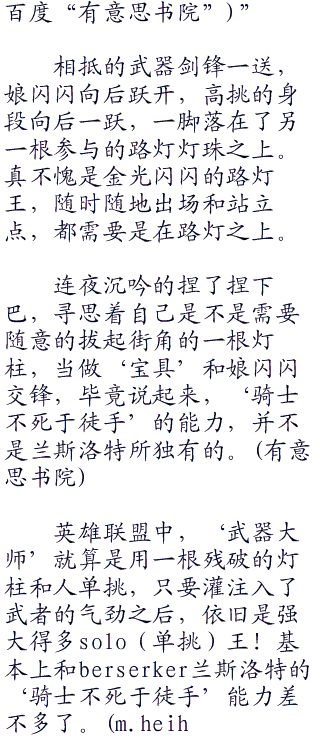 百度“有意思书院”)”
相抵的武器剑锋一送，
娘闪闪向后跃开，高挑的身
段向后一跃，一脚落在了另
一根参与的路灯灯珠之上。
真不愧是金光闪闪的路灯
王，随时随地出场和站立
点，都需要是在路灯之上。
连夜沉吟的捏了捏下
巴，寻思着自己是不是需要
随意的拔起街角的一根灯
柱，当做‘宝具’和娘闪闪
交锋，毕竟说起来，‘骑士
不死于徒手’的能力，并不
是兰斯洛特所独有的。(有意
思书院)
英雄联盟中，‘武器大
师’就算是用一根残破的灯
柱和人单挑，只要灌注入了
武者的气劲之后，依旧是强
大得多solo（单挑）王！基
本上和berserker兰斯洛特的
‘骑士不死于徒手’能力差
不多了。(m.heih